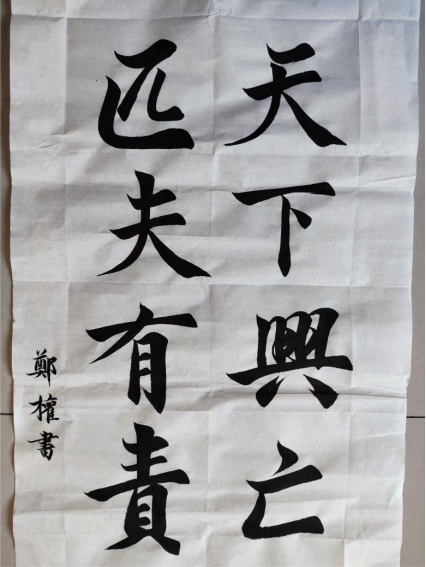 天下興亡
匹夫有責
鄭權書